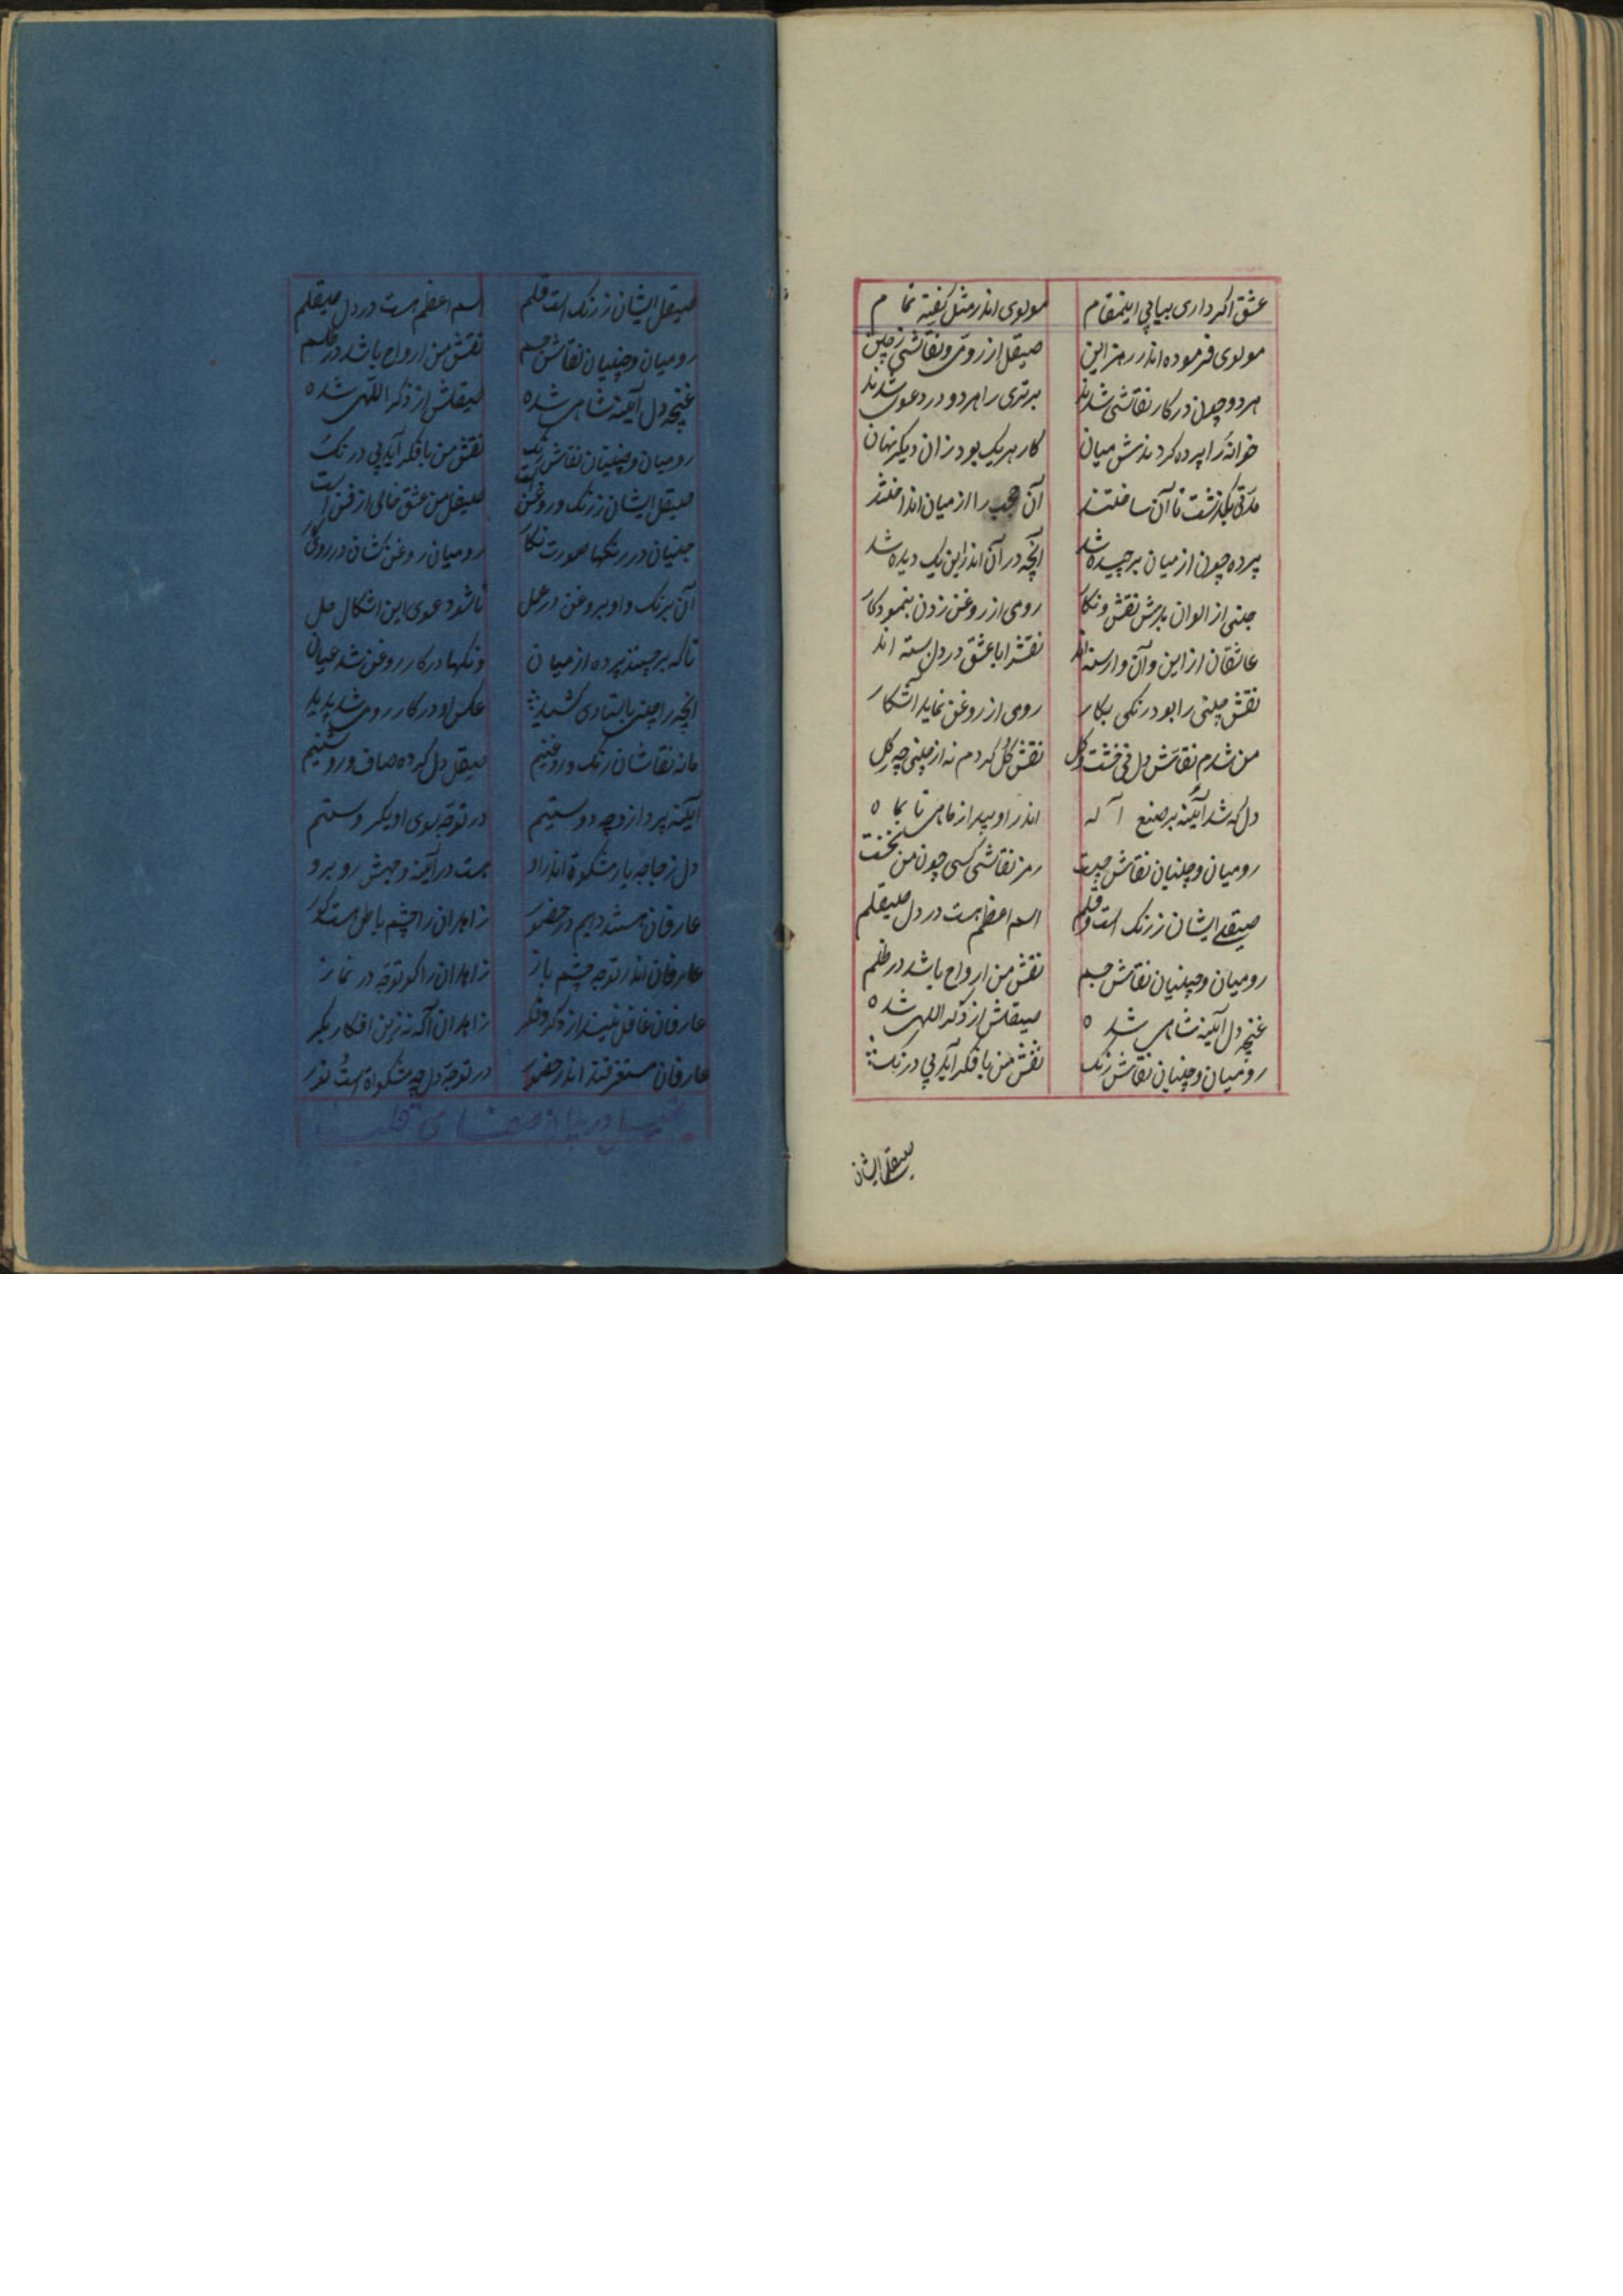 عشق اگر داری بیابی اینمقام مولوی اندر مثل گفته تمام
مولوی فرموده اندر رمز این صیقل از رومی و نقاشی ز چین
هر دو چون در کار نقاشی شدند برتری را هر دو در دعوی شدند
خوانه را پرده کردندش میان کار هر یک بود زان دیگر نهان
مدتی بگذشت تا آن ساختند آن حجب را از میان انداختند
پرده چون از میان برچیده شد آنچه در آن اندر این یک دیده شد
چینی از الوان بدش نقش و نگار رومی از روغن زدن بنمود کار
عاشقان از این و آن وارسته‌اند نقش را با عشق در دل بسته اند
نقش چینی را بود رنگی بکار رومی از روغن نماید آشکار
من شدم نقاش دل نی خشت و گل نقش گل کردم نه از چینی چه گل
دل که شد آئینه بر صنع آله اندر او پیدا ز ماهی تا بماه
رومیان و چینیان نقاش چیت رمز نقاشی کسی چون من نخت
صیقلی ایشان ز رنگ است و قلم اسم اعظم هست در دل صیقلم
رومیان و چینیان نقاش جسم نقش من ارواح باشد در طلسم
غنچه دل آئینه شاهی شده صیقلش از ذکر اللهی شده
رومیان و چینیان نقاش رنگ نقش من با فکر آید بی درنگ
صیقلی ایشان
صیقل ایشان ز رنگ است قلم اسم اعظم هست در دل صیقلم
رومیان و چینیان نقاش جسم نقش من ارواح باشد در طلسم
غنچه دل آئینه شاهی شده صیقلش از ذکر اللهی شده
رومیان و چینیان نقاش رنگ نقش من با فکر آید بی درنگ
صیقل ایشان ز رنگ و روغن است صیقل من عشق خالی از فن است
چینیان در رنگها صورت نگار رومیان روغن کشان در روی کار
آن برنگ و او بروغن در عمل تا شد دعوی این اشکال حل
تا که برچیند پرده از میان رنگها در کار روغن شد عیان
آنچه را چینی باستادی کشید عکس او در کار رومی شد پدید
ما نه نقاشان رنگ و روغنیم صیقل دل کرده صاف و روشنیم
آیینه پرداز وجه دوستیم در توجه سوی او یکر وستیم
دل زجاجه یار مشکوة اندر او هست در آئینه وجهش روبرو
عارفان هستند دایم در حضور زاهدان را چشم باطن هست کور
عارفان اندر توجه چشم باز زاهدان را کو توجه در نماز
عارفان غافل نیند از ذکر و فکر زاهدان آگه نه زین افکار بکر
عارفان مستغرقند اندر حضور در توجه دل چه مشکواة است نور
در بیان صفای قلب